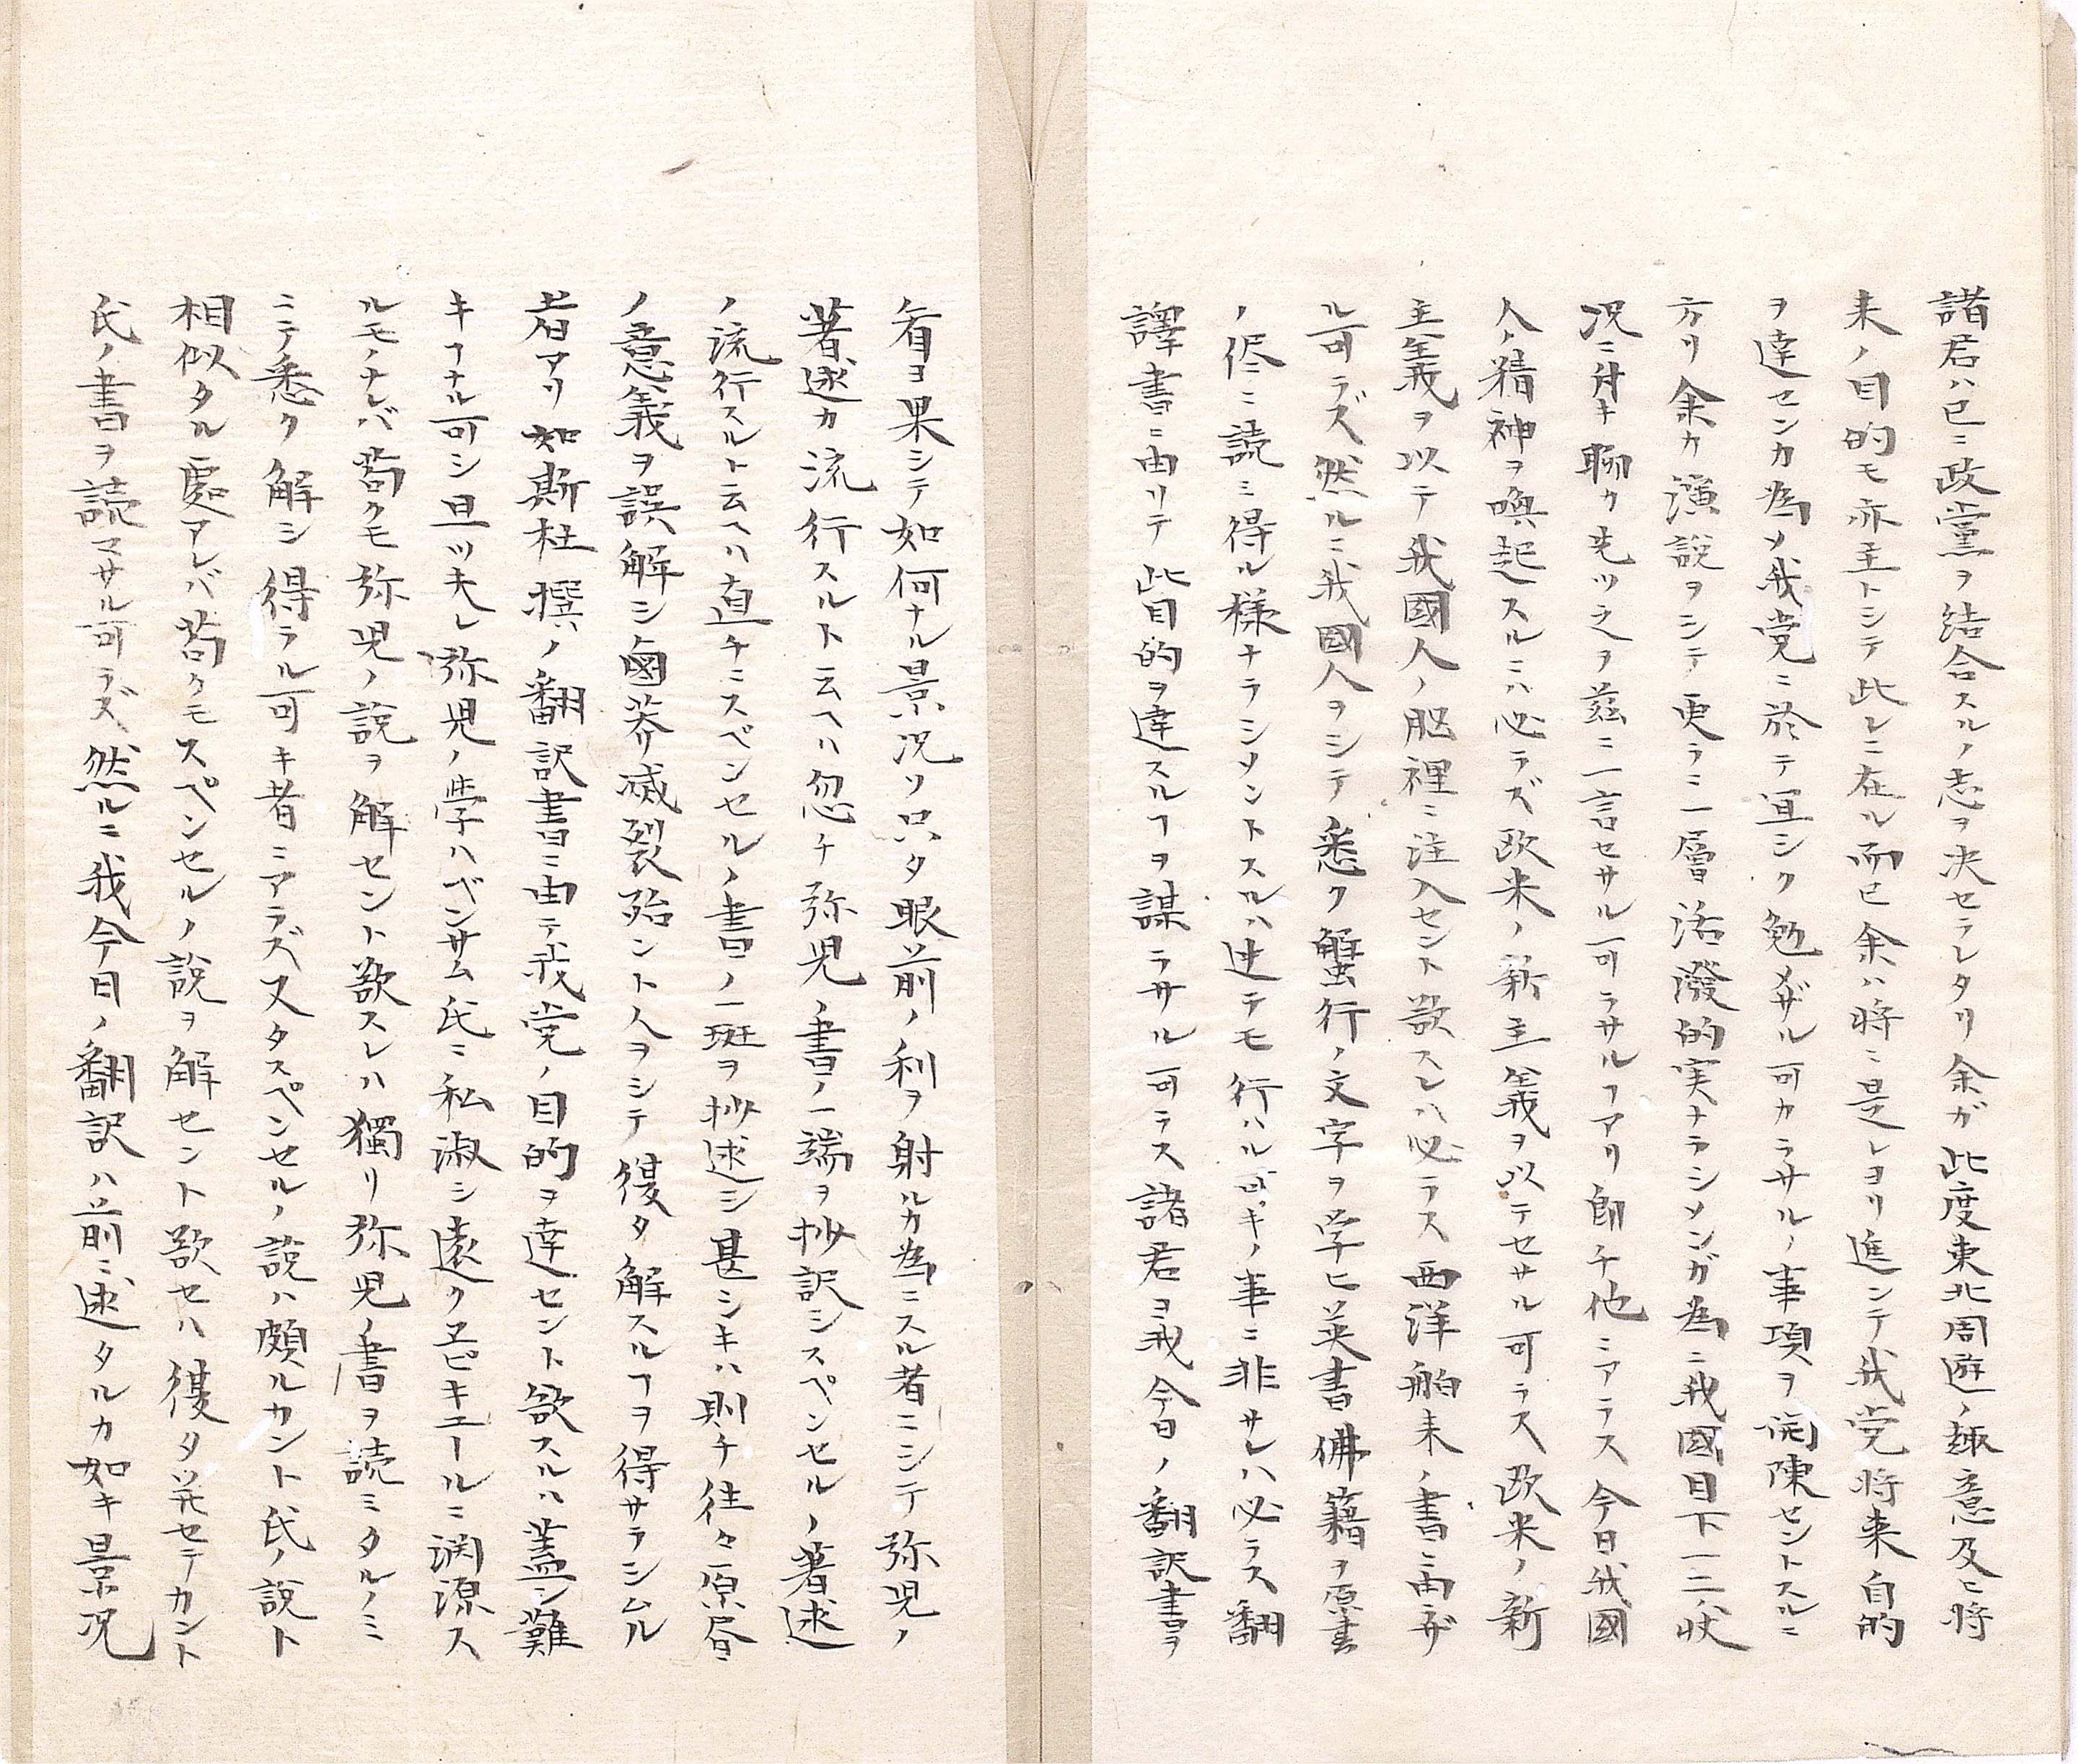 諸君ハ已ニ政黨ヲ結合スルノ志ヲ决セラレタリ余ガ此度東北周遊ノ趣意及ニ将
来ノ目的モ亦主トシテ此レニ在ル而已余ハ将ニ是レヨリ進ンテ我党将来目的
ヲ達センカ為メ我党ニ於テ宜シク勉メザル可カラサルノ事項ヲ開陳セントスルニ
方リ余カ演説ヲシテ更ラニ一層活潑的実ナラシメンガ為ニ我國目下一二ノ状
况ニ付キ聊ク先ツ之ヲ茲ニ一言セサル可ラサルヿアリ即チ他ニアラス今日我國
人ノ精神ヲ喚起スルニハ必ラズ欧米ノ新主義ヲ以テセサル可ラス欧米ノ新
主義ヲ以テ我國人ノ脳裡ニ注入セント欲スレハ必ラス西洋舶来ノ書ニ由ザ
ル可ラズ然ルニ我國人ヲシテ悉ク蟹行ノ文字ヲ学ヒ英書佛籍ヲ原書
ノ侭ニ読ミ得ル様ナラシメントスルハ迚テモ行ハル可キノ事ニ非サレハ必ラス翻
譯書ニ由リテ此目的ヲ達スルヿヲ謀ラサル可ラス諸君ヨ我今日ノ翻訳書ヲ
看ヨ果シテ如何ナル景况ソ只タ眼前ノ利ヲ射ルカ為ニスル者ニシテ弥児ノ
著述カ流行スルト云ヘハ忽チ弥児ノ書ノ一端ヲ抄訳シスペンセルノ著述
ノ流行スルト云ヘハ直チニスペンセルノ書ノ一斑ヲ抄述シ甚シキハ則チ往々原書
ノ意義ヲ誤解シ鹵莽滅裂殆ント人ヲシテ復タ解スルヿヲ得サラシムル
者アリ如斯杜撰ノ翻訳書ニ由テ我党ノ目的ヲ達セント欲スルハ蓋シ難
キヿナル可シ且ツ夫レ弥児ノ學ハベンサム氏ニ私淑シ遠クヱピキエールニ渕源ス
ルモノナレバ苟クモ弥児ノ説ヲ解セント欲スレハ獨リ弥児ノ書ヲ読ミタルノミ
ニテ悉ク解シ得ラル可キ者ニアラズ又タスペンセルノ説ハ頗ルカント氏ノ説ト
相似タル處アレバ苟クモスペンセルノ説ヲ解セント欲セハ復タ必セテカント
氏ノ書ヲ読マサル可ラズ然ルニ我今日ノ翻訳ハ前ニ述タルカ如キ景况